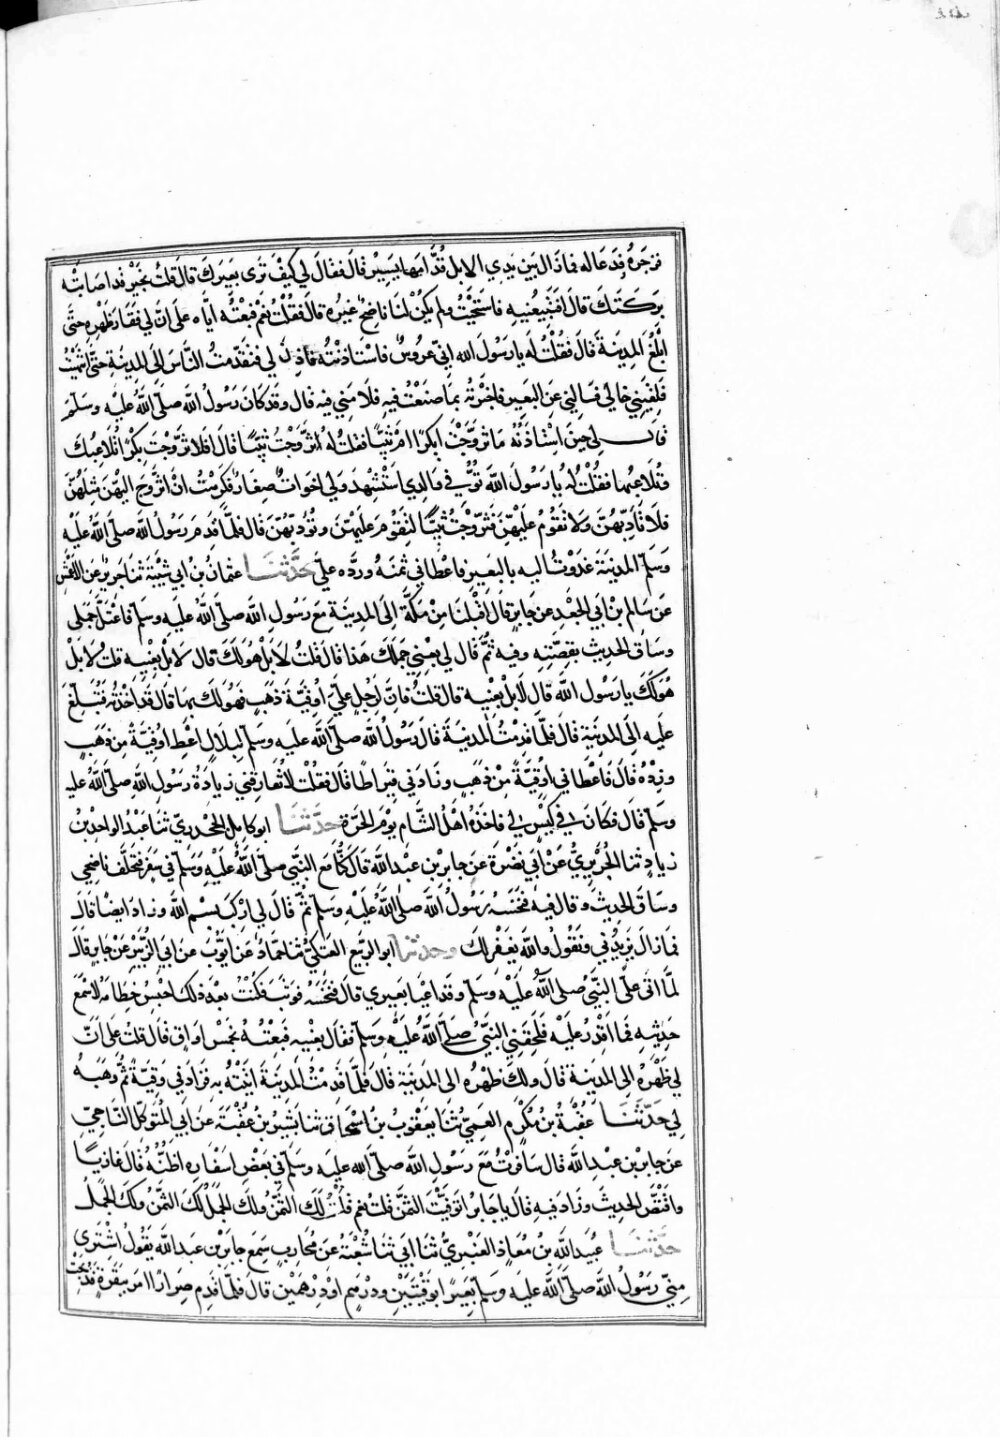 فزجره فدعا له فما زال بين يدي الابل قدامها يسير قال فقال لي كيف ترى بعيرك قال قلت بخير قد اصابته
بركتك قال افتبيعنيه فاستحييت ولم يكن لنا ناضح غيره قال فقلت نعم فبعته اياه على ان لي فقار ظهره حتى
ابلغ المدينة قال فقلت له يا رسول الله اني عروس فاستاذنته فاذن لي فتقدمت الناس الى المدينة حتى انتهيت
فلقيني خالي فسالني عن البعير فاخبرته بما صنعت فيه فلامني فيه قال وقد كان رسول الله صلى الله عليه وسلم
قال لي حين استاذنته ما تزوجت ابكرا ام ثيبا فقلت له تزوجت ثيبا قال افلا تزوجت بكرا تلاعبك
وتلاعبها فقلت له يا رسول الله توفي والدي او استشهد ولي اخوات صغار فكرهت ان اتزوج اليهن مثلهن
فلا تادبهن ولا تقوم عليهن فتزوجت ثيبا لتقوم عليهن وتودبهن قال فلما قدم رسول الله صلى الله عليه
وسلم المدينة غدوت اليه بالبعير فاعطاني ثمنه ورده علي حدثنا عثمان بن ابي شيبة ثنا جرير عن الاعمش
عن سالم بن ابي الجعد عن جابر قال اقبلنا من مكة الى المدينة مع رسول الله صلى الله عليه وسلم فاعتل جملي
وساق الحديث بقصته وفيه ثم قال لي بعني جملك هذا قال قلت لا بل هو لك قال لا بل بعنيه قلت لا بل
هو لك يا رسول الله قال لا بل بعنيه قال قلت فان لرجل علي اوقية ذهب فهو لك بها قال قد اخذته فتبلغ
عليه الى المدينة قال فلما قدمت المدينة قال رسول الله صلى الله عليه وسلم لبلال اعطه اوقية من ذهب
وزده قال فاعطاني اوقية من ذهب وزادني قيراطا قال فقلت لا تفارقني زيادة رسول الله صلى الله عليه
وسلم قال فكان في كيس لي فاخذه اهل الشام يوم الحرة حدثنا ابو كامل الجحدري ثنا عبد الواحد بن
زياد ثنا الجريري عن ابي نضرة عن جابر بن عبد الله قال كنا مع النبي صلى الله عليه وسلم في سفر فتخلف ناضحي
وساق الحديث وقال فيه فنخسه رسول الله صلى الله عليه وسلم ثم قال لي اركب بسم الله وزاد ايضا قال
فما زال يزيدني ويقول والله يغفر لك وحدثنا ابو الربيع العتكي ثنا حماد عن ايوب عن ابي الزبير عن جابر قال
لما اتى علي النبي صلى الله عليه وسلم وقد اعيا بعيري قال فنخسه فوثب فكنت بعد ذلك احبس خطامه لاسمع
حديثه فما اقدر عليه فلحقني النبي صلى الله عليه وسلم فقال بعنيه فبعته بخمس اواق قال قلت على ان
لي ظهره الى المدينة قال ولك ظهره الى المدينة قال فلما قدمت المدينة اتيته به فزادني وقية ثم وهبه
لي حدثنا عقبة بن مكرم العمي ثنا يعقوب بن اسحاق ثنا بشير بن عقبة عن ابي المتوكل الناجي
عن جابر بن عبد الله قال سافرت مع رسول الله صلى الله عليه وسلم في بعض اسفاره اظنه قال غازيا
واقتص الحديث وزاد فيه قال يا جابر اتوفيت الثمن قلت نعم قال لك الثمن ولك الجمل لك الثمن ولك الجمل
حدثنا عبيد الله بن معاذ العنبري ثنا ابي ثنا شعبة عن محارب سمع جابر بن عبد الله يقول اشترى
مني رسول الله صلى الله عليه وسلم بعيرا بوقيتين ودرهم او درهمين قال فلما قدم صرارا امر ببقرة فذبحت